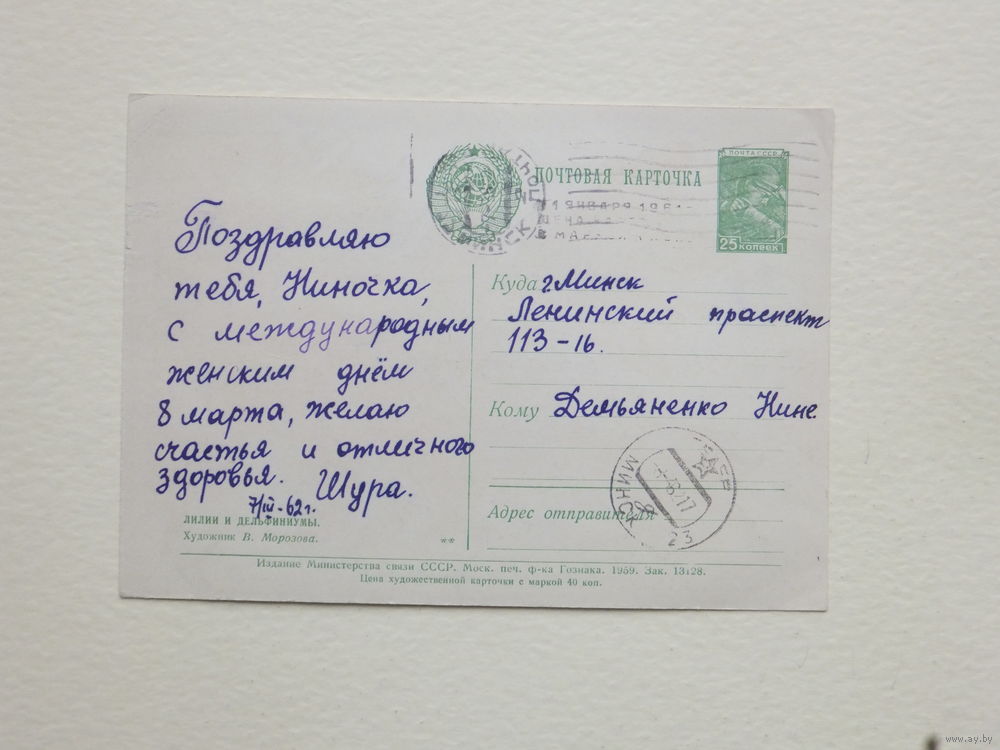 ПОЧТОВАЯ КАРТОЧКА
ПОЧТА СССР
25 КОПЕЕК
Поздравляю
тебя, Ниночка,
с международным
женским днём
8 марта, желаю
счастья и отличного
здоровья. Шура.
7/III-62 г.
ЛИЛИИ И ДЕЛЬФИНИУМЫ.
Художник В. Морозова.
Куда г. Минск
Ленинский праспект
113-16.
Кому Демьяненко Нине
МИНСК
23
Адрес отправителя
**
Издание Министерства связи СССР. Моск. печ. ф-ка Гознака. 1959. Зак. 13128.
Цена художественной карточки с маркой 40 коп.
www.ay.by